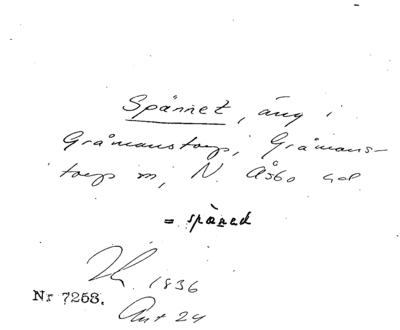 Spännet, äng i
Gråmanstorp, Gråmans-
torps sn, N. Åsbo hd
= spàned
1836
Nr 7258.
Ant 24